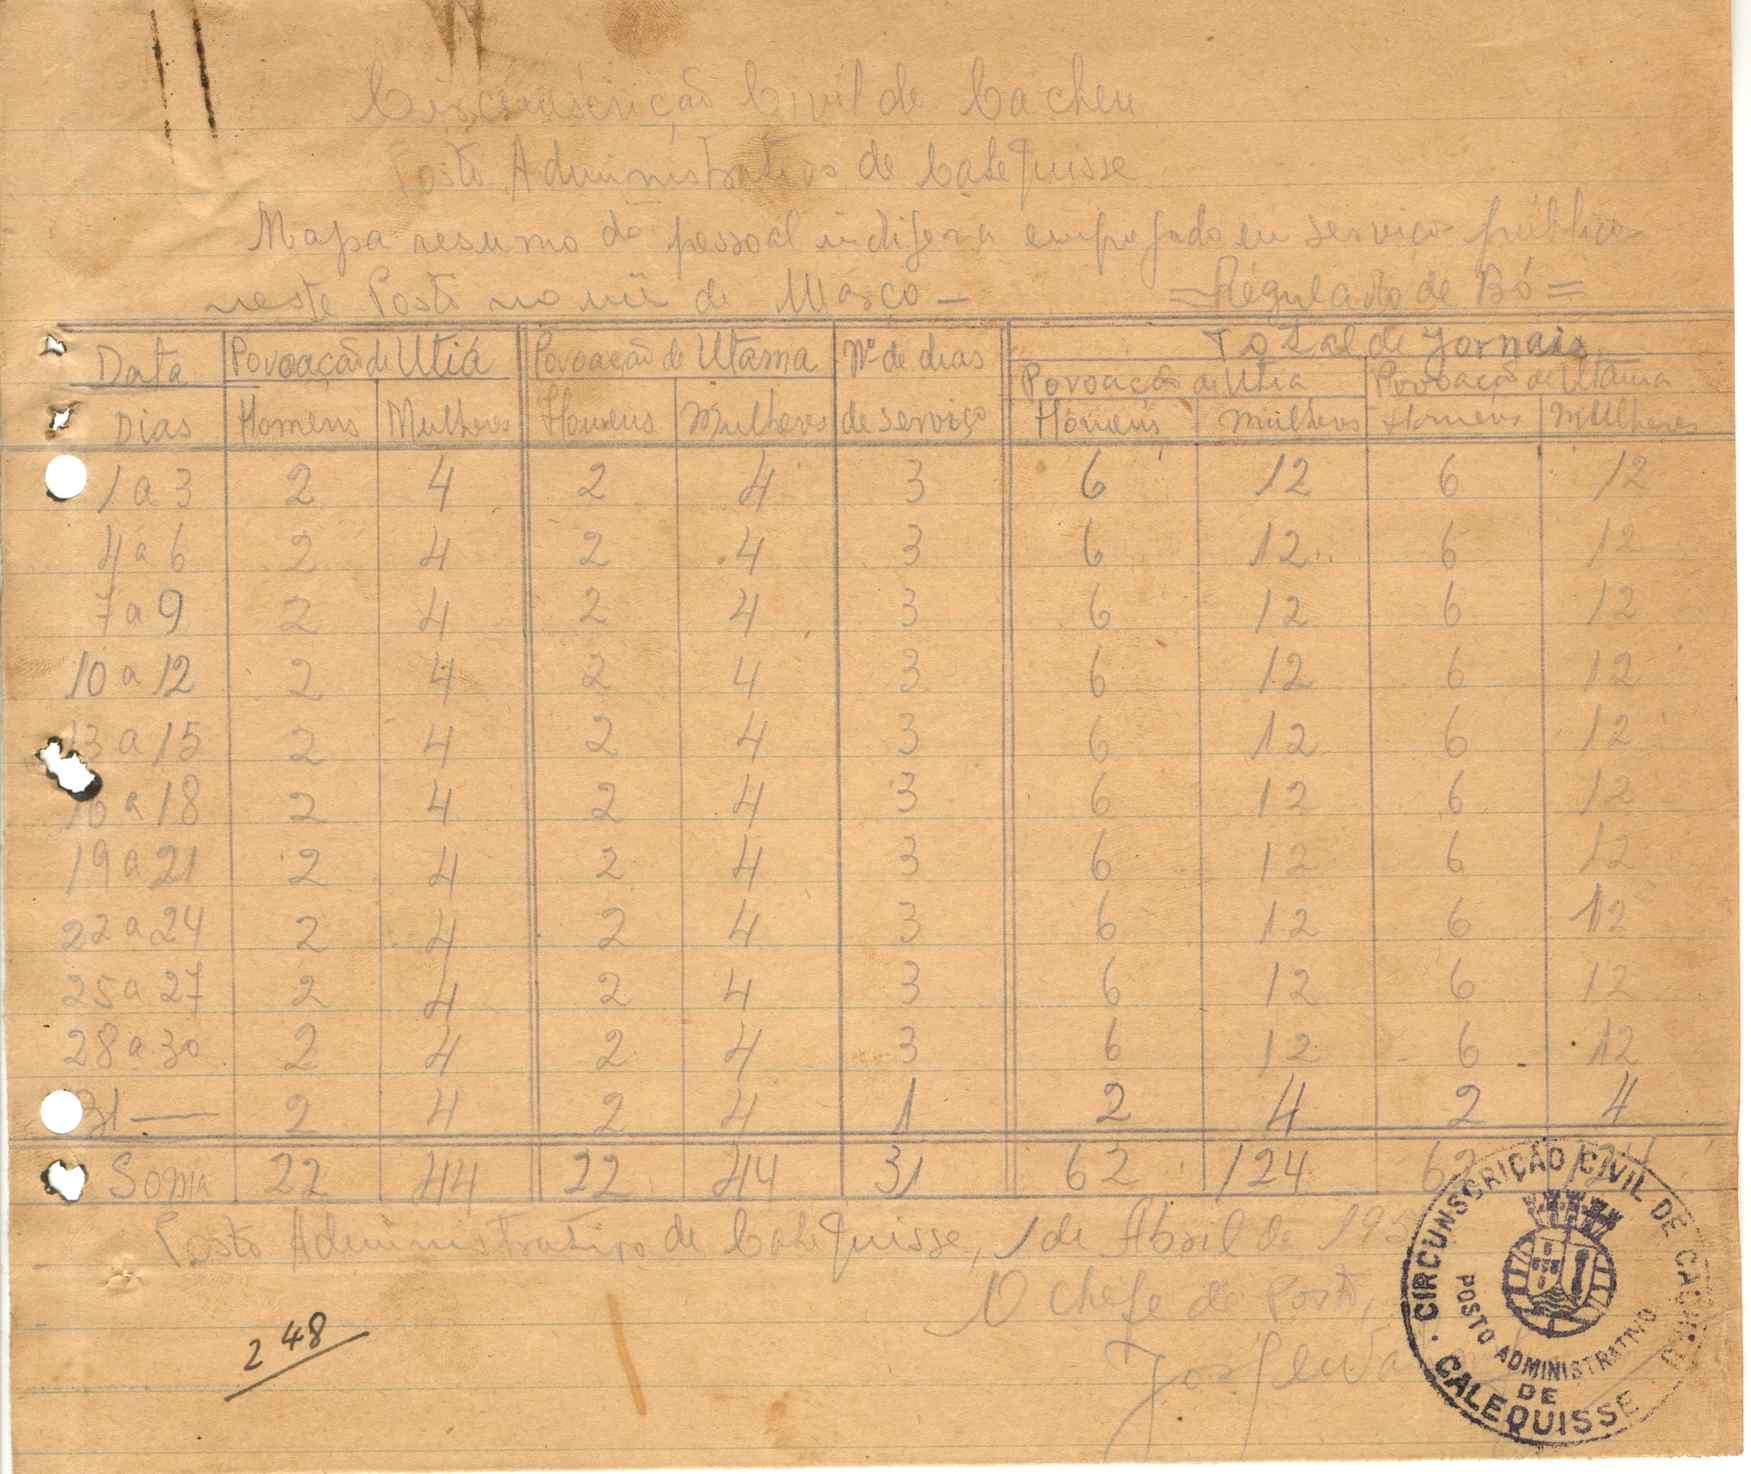 Circunscrição Civil de Cacheu
Posto Administrativo de Calequisse
Mapa resumo do pessoal indigena empregado em serviço público
neste Posto no mês de Março — = Regulado de Bó =
Data Povoação de Utiá Povoação de Utama Nº de dias Total de Jornais
Povoação de Utia Povoação de Utama
Dias Homens Mulheres Homens Mulheres de serviço Homens Mulheres Homens Mulheres
1 a 3 2 4 2 4 3 6 12 6 12
4 a 6 2 4 2 4 3 6 12 6 12
7 a 9 2 4 2 4 3 6 12 6 12
10 a 12 2 4 2 4 3 6 12 6 12
13 a 15 2 4 2 4 3 6 12 6 12
16 a 18 2 4 2 4 3 6 12 6 12
19 a 21 2 4 2 4 3 6 12 6 12
22 a 24 2 4 2 4 3 6 12 6 12
25 a 27 2 4 2 4 3 6 12 6 12
28 a 30 2 4 2 4 3 6 12 6 12
31 — 2 4 2 4 1 2 4 2 4
Soma 22 44 22 44 31 62 124 62 124
Posto Administrativo de Calequisse, 1 de Abril de
O Chefe de Posto,
248
CIRCUNSCRIÇÃO CIVIL DE CACHEU
POSTO ADMINISTRATIVO
DE
CALEQUISSE